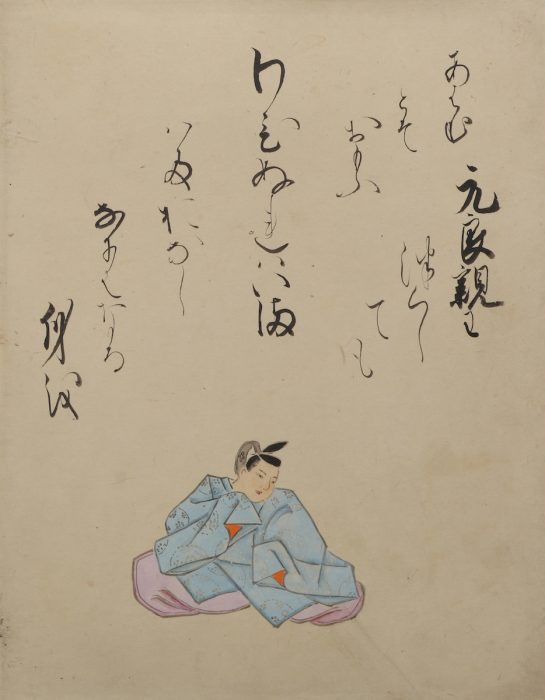 元良親王
わひぬれハいま
ハ多おなし
なにはなる
身越
つくし
ても
あはむ
とそ
おもふ